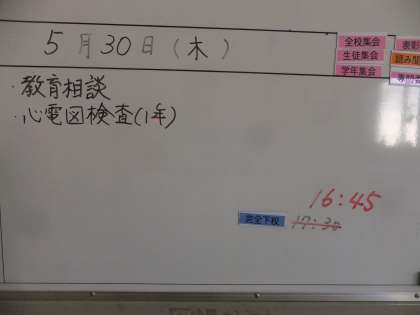 5月30日(木)
全校集会
生徒集会
学年集会
表彰
・教育相談
・心電図検査(1年)
16:45
完全下校 17:30